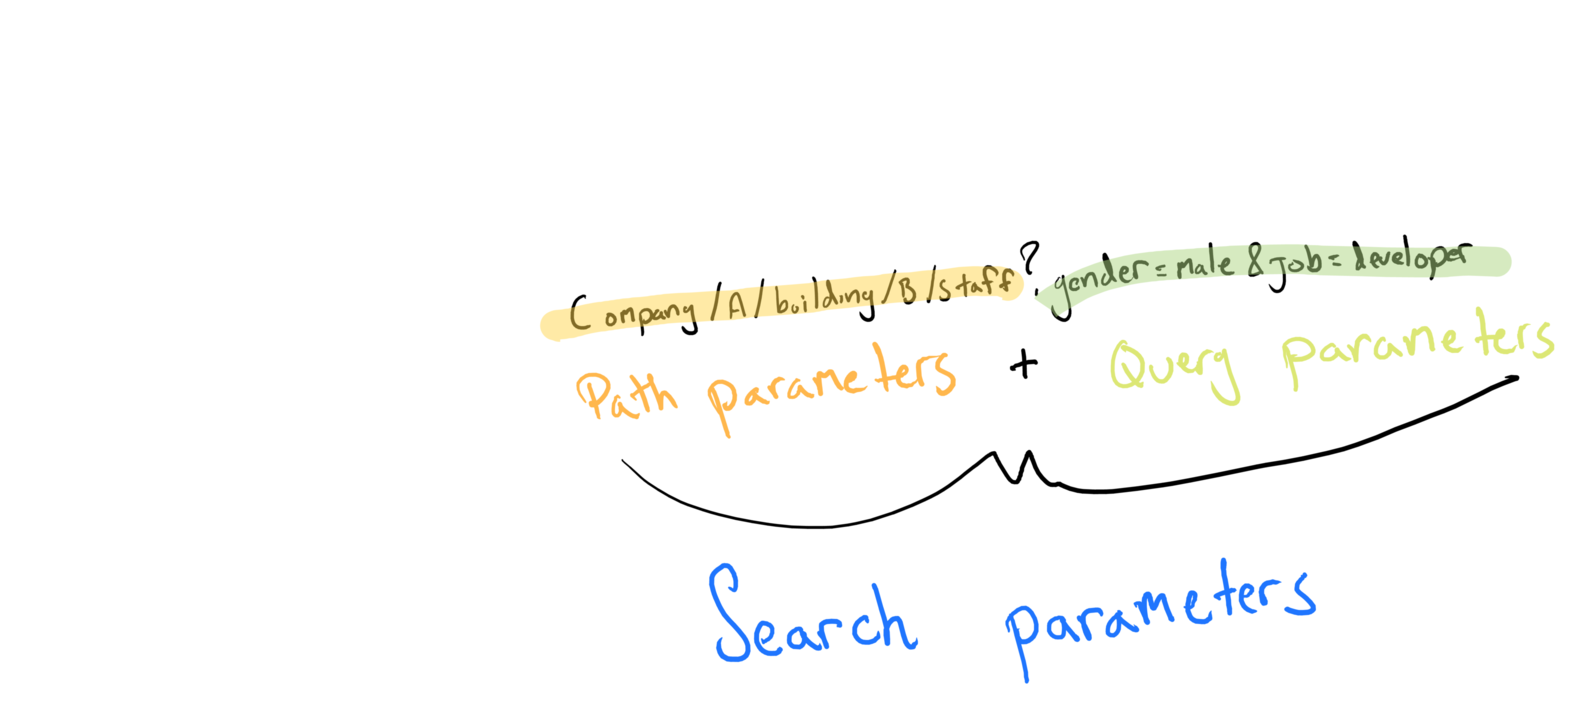 Company/A/building/B/staff?gender=male&job=developer
Path parameters + Query parameters
Search parameters